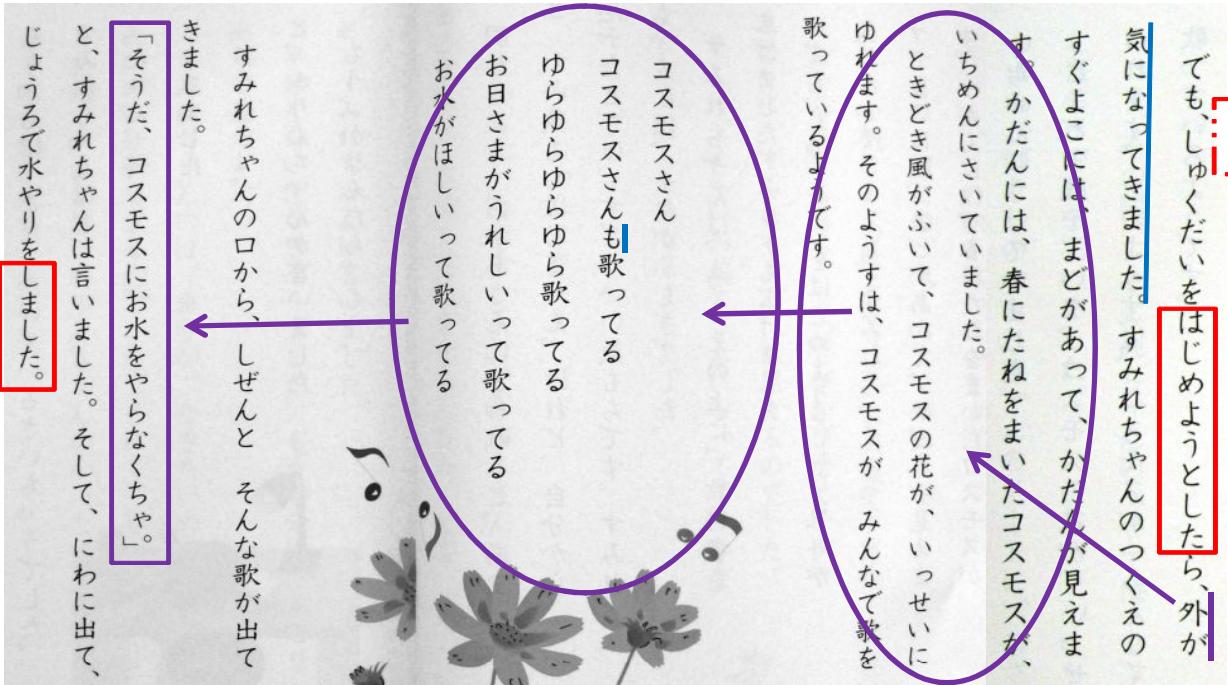 でも、しゅくだいをはじめようとしたら、外が
気になってきました。すみれちゃんのつくえの
すぐよこには、まどがあって、かだんが見えま
す。かだんには、春にたねをまいたコスモスが、
いちめんにさいていました。
ときどき風がふいて、コスモスの花が、いっせいに
ゆれます。そのようすは、コスモスが みんなで歌を
歌っているようです。
コスモスさん
コスモスさんも歌ってる
ゆらゆらゆらゆら歌ってる
お日さまがうれしいって歌ってる
お水がほしいって歌ってる
すみれちゃんの口から、しぜんと そんな歌が出て
きました。
「そうだ、コスモスにお水をやらなくちゃ。」
と、すみれちゃんは言いました。そして、にわに出て、
じょうろで水やりをしました。